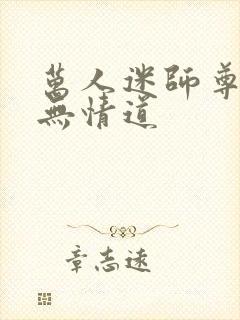 萬人迷師尊
無情道
章志遠